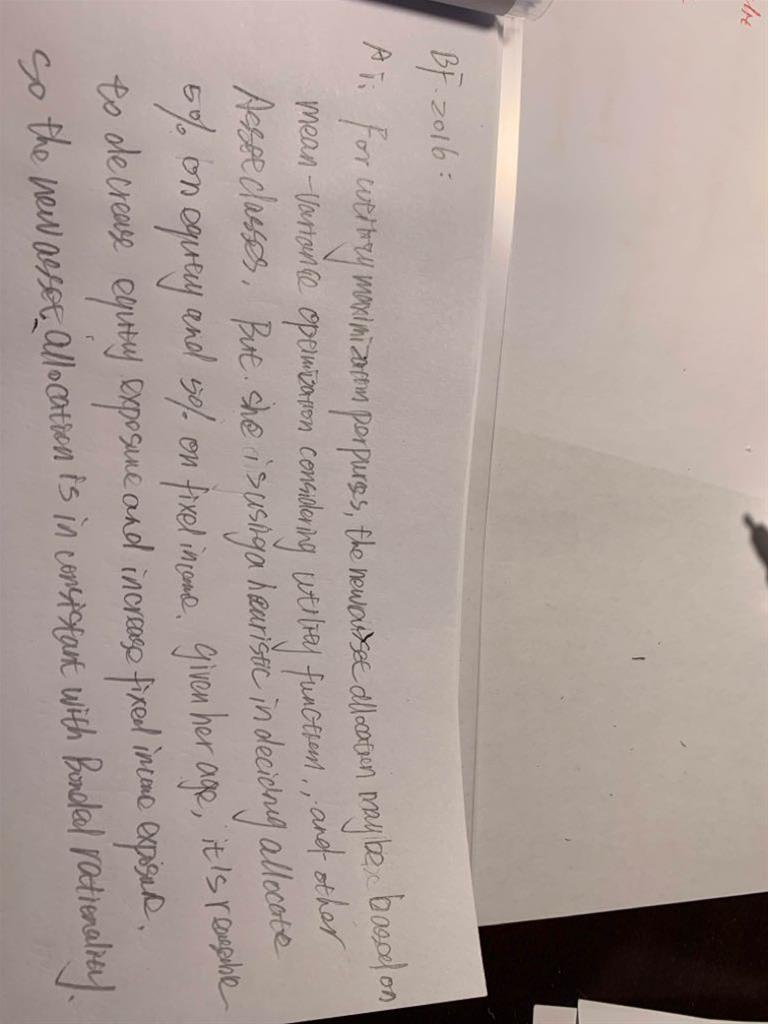 BF. 2016:
A i. For utility maximization purpuses, the new asset allocation maybe based on
mean-variance optimization considering utility function, and other
Asset classes. But. she is using a heuristic in deciding allocate
50% on equity and 50% on fixed income. given her age, it is reasonable
to decrease equity exposure and increase fixed income exposure.
So the new asset allocation is in consistant with Bonded rationality.